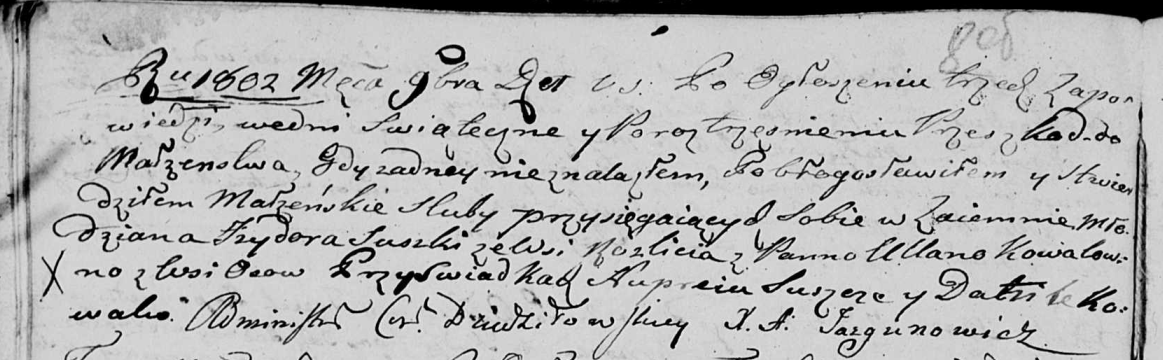 Ru 1802 Męca 9bra Po Ogłoszeniu trzech Zapo-
wiedzi, w edni Swiąteczne y Poroztrząsnieniu Przeszkod do
Małżenstwa, Gdy zadney nie znalazłem, Pobłogosławiłem y Stwier
dziłem Małżeńskie Sluby przysięgaiących Sobie w Zaiemnie Mło-
dziana Izydora Suszki ze Wsi z Panno Ullano Kowalow-
no z Wsi Osow Przy Swiadkach Kupreiu Suszcze y Ko-
walu. Administr Cer. Dziedziłowskiey X. A. Jazgunowicz